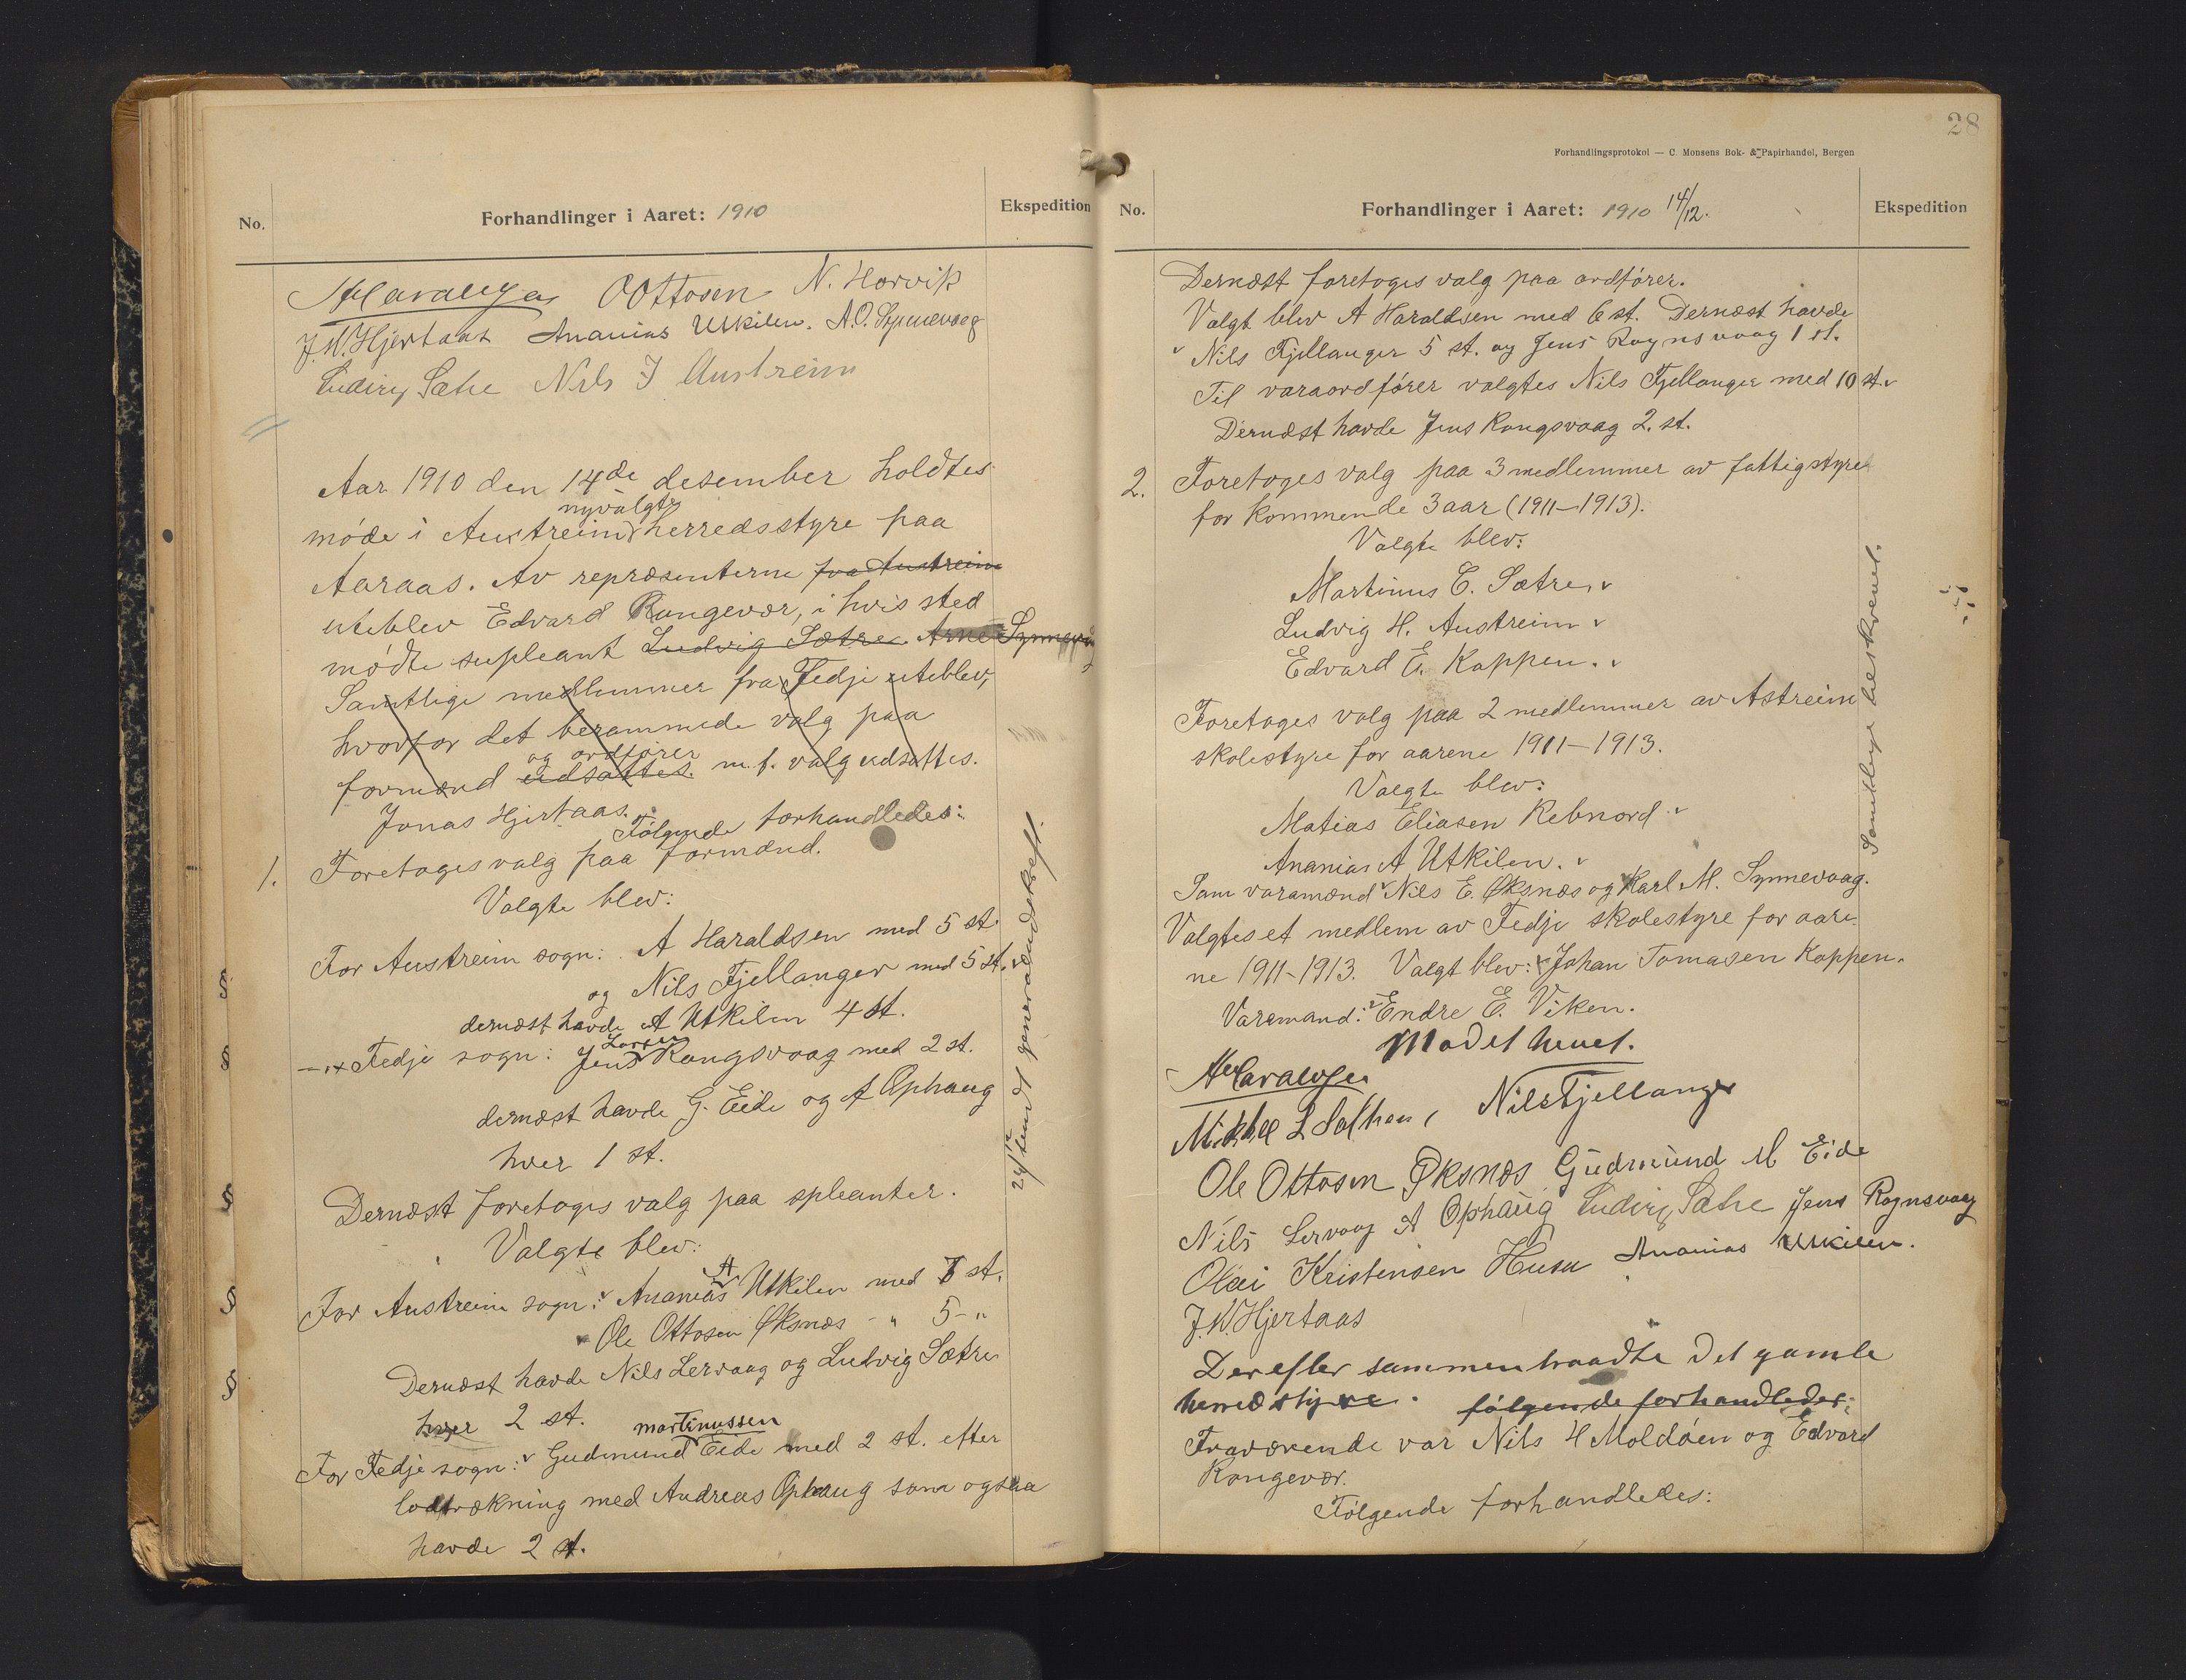 No.
Forhandlinger i Aaret: 1910
Ekspedition
AHaraldsen OOttosen N. Horvik
J.W.Hjertaas Ananias Utkilen. A.O. Synnevaag
Ludvig Sætre Nils J Austreim
Aar 1910 den 14de desember holdtes
nyvalgte
møde i Austreim herredsstyre paa
Aaraas. Av repræsenterne fra Austreim
uteblev Edvard Rongevær, i hvis sted
mødte supleant Ludvig Sætre. Arne Synnevaag
Samtlige medlemmer fra Fedje uteblev,
hvorfor det berammede valg paa
og ordfører
formænd udsattes. m.f. valg udsattes.
Jonas Hjertaas.
Følgende forhandledes:
1. Foretoges valg paa formænd.
Valgte blev:
For Austreim sogn: A Haraldsen med 5 st.
og Nils Fjellanger med 5 st.
dernæst havde A Utkilen 4 st.
Larsen
—"— Fedje sogn: Jens Rongsvaag med 2 st.
dernæst havde G. Eide og A Ophaug
hver 1 st.
Dernæst foretoges valg paa spleanter.
Valgte blev:
A
For Austreim sogn: Ananias Utkilen med 7 st.
Ole Ottosen Øksnæs - " 5 - "
Dernæst havde Nils Lervaag og Ludvig Sætre
hver 2 st.
martinussen
For Fedje sogn: Gudmund Eide med 2 st. efter
lodtrækning med Andreas Ophaug som ogsaa
havde 2 st.
28
Forhandlingsprotokol — C. Monsens Bok- & Papirhandel, Bergen
No.
Forhandlinger i Aaret: 1910 14/12.
Ekspedition
Dernæst foretoges valg paa ordfører.
Valgt blev A Haraldsen med 6 st. Dernæst havde
Nils Fjellanger 5 st. og Jens Rognsvaag 1 st.
Til varaordfører valgtes Nils Fjellanger med 10 st.
Dernæst havde Jens Rongsvaag 2. st.
2. Foretoges valg paa 3 medlemmer av fattigstyre
for kommende 3 aar (1911—1913).
Valgte blev:
Martinus E. Sætre.
Ludvig H. Austreim
Edvard E. Koppen.
Foretoges valg paa 2 medlemmer av Astreim
skolestyre for aarene 1911—1913.
Valgte blev:
Matias Eliasen Rebnord.
Ananias A Utkilen.
Som varamænd Nils E. Øksnæs og Karl M. Synnevaag.
Valgtes et medlem av Fedje skolestyre for aare-
ne 1911-1913. Valgt blev: Johan Tomasen Koppen.
Varemand: Endre E. Viken.
Samtlige beskrevet.
Mødet hevet.
AHaraldsen
Mikkel L Solheim, Nils Fjellanger
Ole Ottosen Øksnæs Gudmund M Eide
Nils Lervaag A Ophaug Ludvig Sætre Jens Rognsvaag
Olai Kristensen Husa Ananias Utkilen.
J.W.Hjertaas
Derefter sammentraadte det gamle
herredstyre. følgende forhandledes:
Fraværende var Nils H Moldøen og Edvard
Rongevær.
Følgende forhandledes: